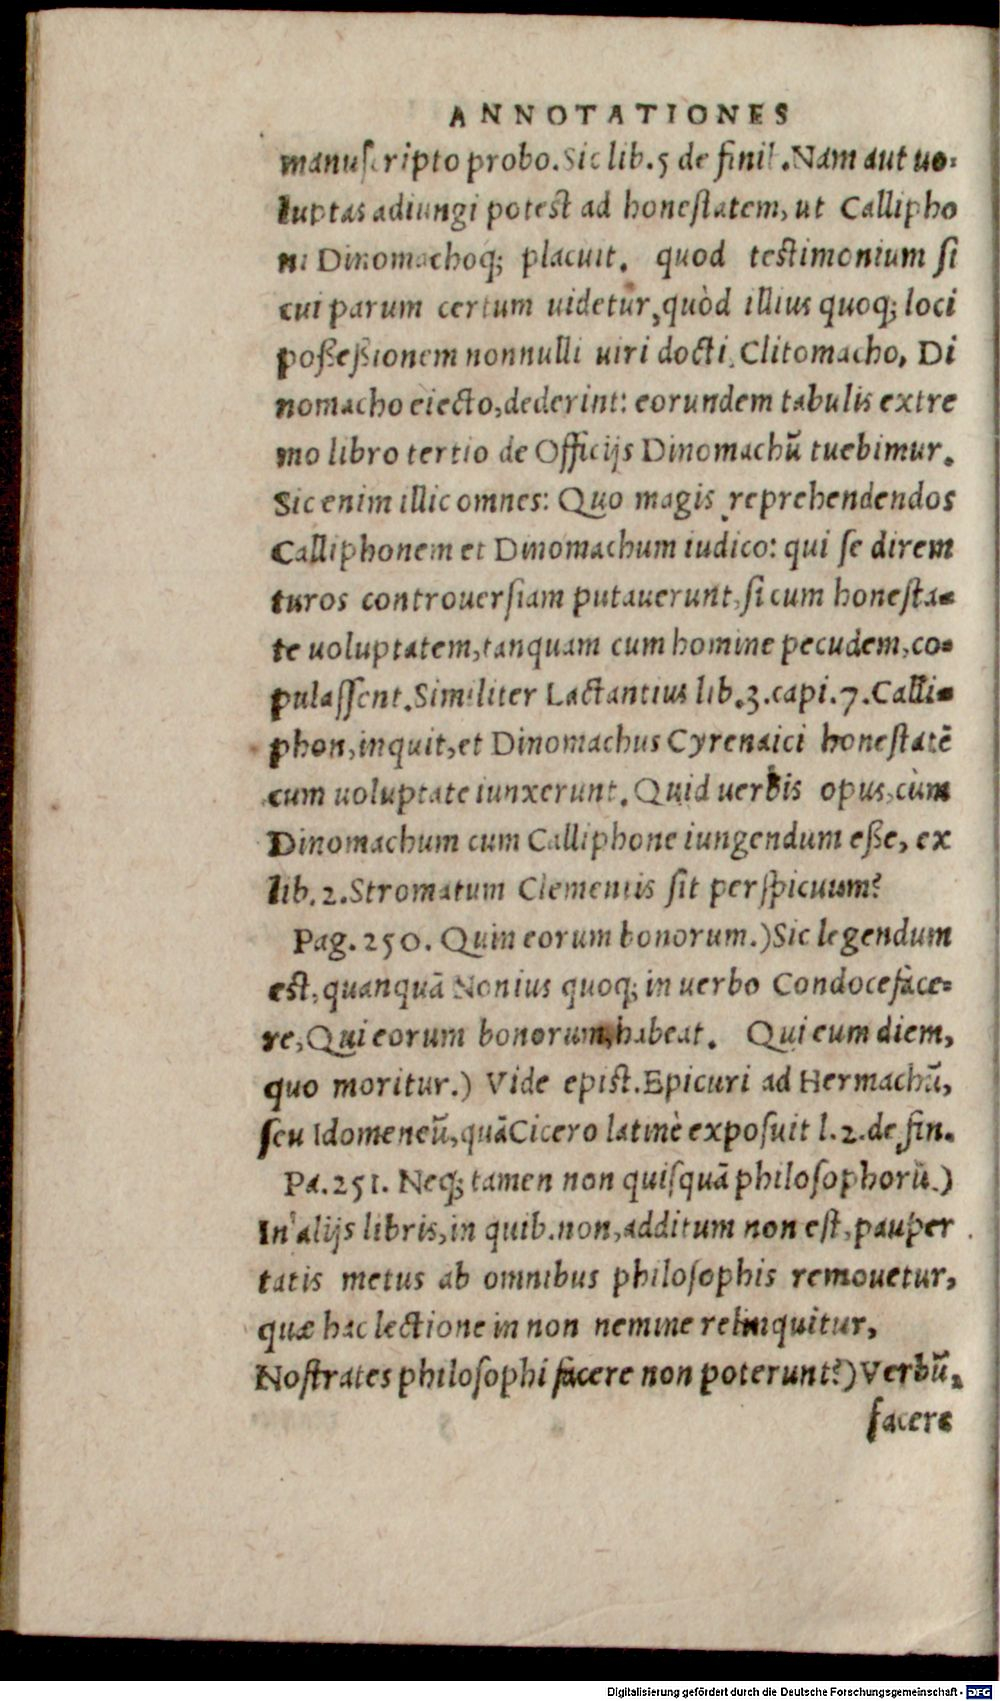 ANNOTATIONES
manuſcripto probo. Sic lib. 5 de finib. Nam aut uo-
luptas adiungi potest ad honeſtatem, ut Callipho
ni Dinomachoq; placuit. quod testimonium ſi
cui parum certum uidetur, quòd illius quoq; loci
poßeßionem nonnulli uiri docti, Clitomacho, Di
nomacho eiecto, dederint: eorundem tabulis extre
mo libro tertio de Officijs Dinomachū tuebimur.
Sic enim illic omnes: Quo magis reprehendendos
Calliphonem et Dinomachum iudico: qui ſe direm
turos controuerſiam putauerunt, ſi cum honeſta-
te uoluptatem, tanquam cum homine pecudem, co-
pulaſſent. Similiter Lactantius lib. 3. capi. 7. Calli-
phon, inquit, et Dinomachus Cyrenaici honeſtatē
cum uoluptate iunxerunt. Quid uerbis opus, cùm
Dinomachum cum Calliphone iungendum eße, ex
lib. 2. Stromatum Clementis ſit perſpicuum?
Pag. 250. Quin eorum bonorum.) Sic legendum
est, quanquā Nonius quoq; in uerbo Condocefàce-
re, Qui eorum bonorum, habeat. Qui eum diem,
quo moritur.) Vide epist. Epicuri ad Hermachū,
ſeu Idomeneū, quā Cicero latinè expoſuit l. 2. de fin.
Pa. 251. Neq; tamen non quiſquā philoſophorū.)
In alijs libris, in quib. non, additum non est, pauper
tatis metus ab omnibus philoſophis remouetur,
quæ hac lectione in non nemine relinquitur,
Noſtrates philoſophi facere non poterunt?) Verbū,
facere
Digitalisierung gefördert durch die Deutsche Forschungsgemeinschaft - DFG